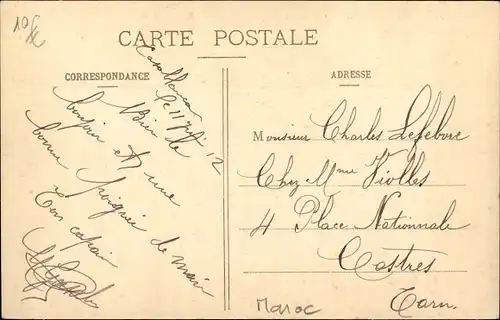 CARTE POSTALE
CORRESPONDANCE
ADRESSE
Casablanca
le 11 12
Bien le
bonjour et une
bonne poignée de main
Ton copain
Monsieur Charles Lefebvre
Chez Mme Violles
4 Place Nationale
Castres
Tarn
Maroc